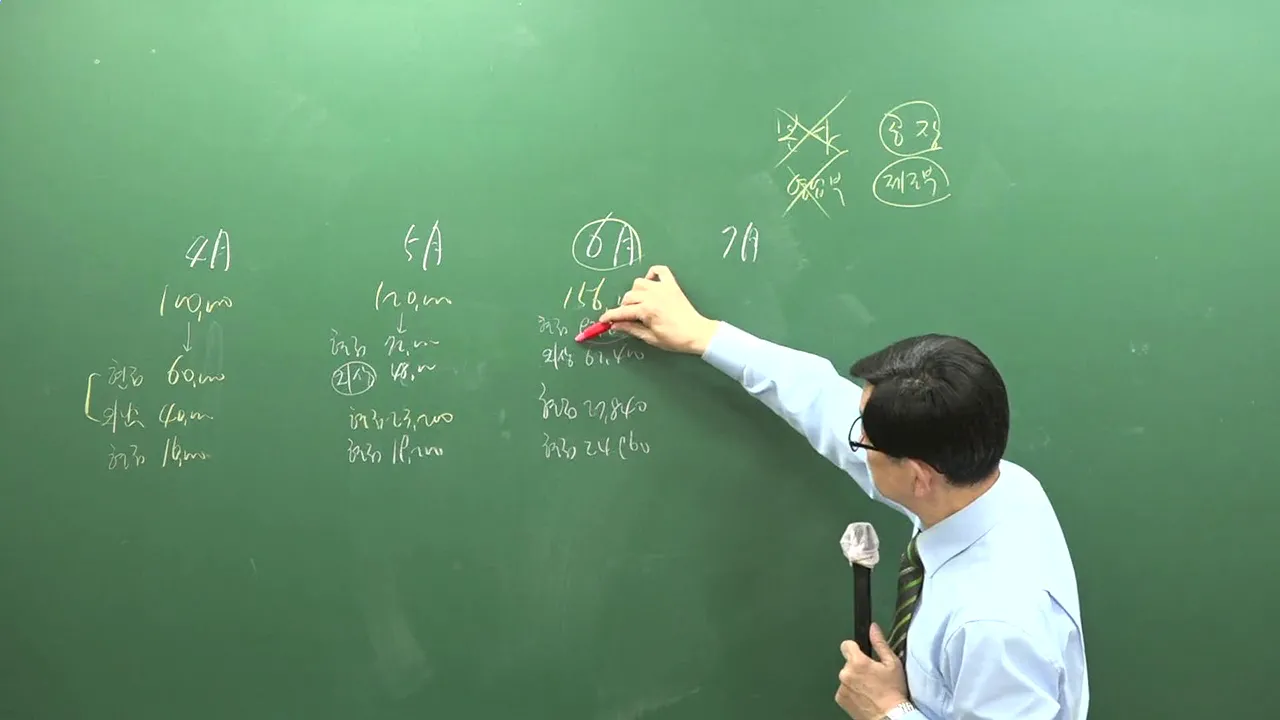 중간
제조부
4月 5月 6月 7月
100,000
현금 60,000
외상 40,000
현금 16,000
120,000
현금 72,000
외상 48,000
현금 23,200
현금 19,200
156,
현금
외상 62,400
현금 27,840
현금 24,960